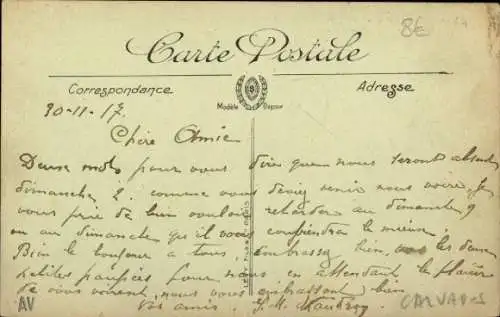 8€
Carte Postale
Correspondance
Adresse
Modèle Depose
30-11-17
Chère Amie
Deux mots pour vous dire que nous seront absent
dimanche 2. comme vous devez venir nous voire, je
vous prie de bien vouloir retarder au dimanche 9
ou au dimanche qu'il vous conviendra le mieux.
Bien le bonjour a tous, embrassez bien les deux
petites poupées pour nous en attendant le plaisir
de vous voir, nous vous embrassont bien
vos amis.
AV
CALVADOS